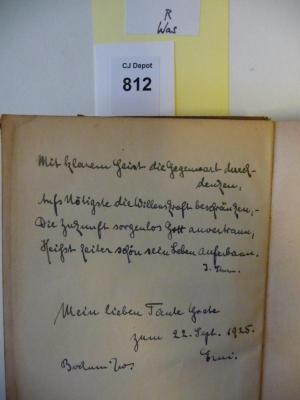 R
Was
CJ Depot
812
Mit klarem Geist die Gegenwart durch-
denken,
Aufs Nötigste die Willenskraft beschränken,-
Die Zukunft sorgenlos Gott anvertraun,
Heißt heiter schön sein Leben auferbaun.
Mein lieben Tante Grete
zum 22. Sept. 1925.
Erni.
Bochum